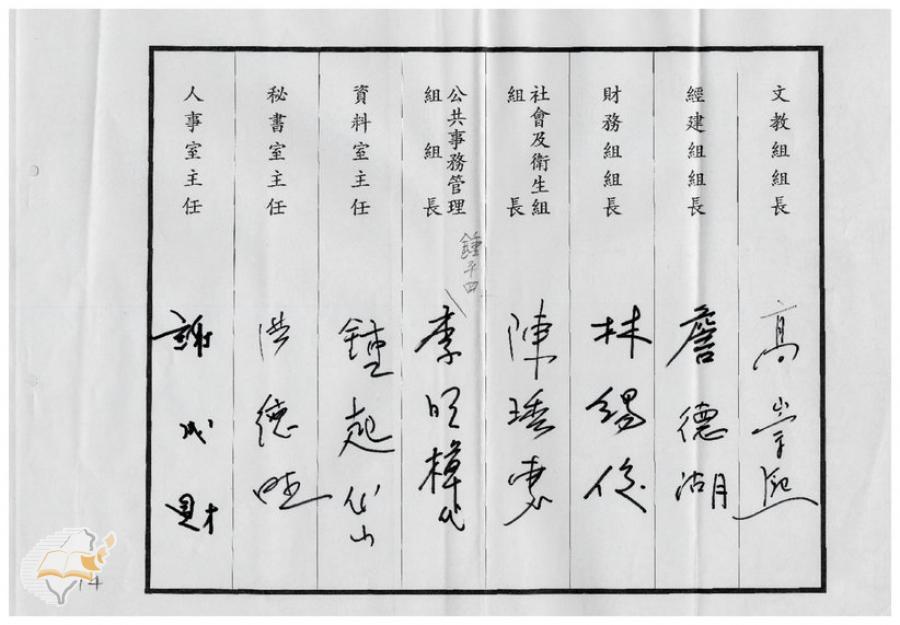 文教組組長
高崇熙
經建組組長
詹德湖
財務組組長
林錫俊
社會及衛生組
組長
陳瑤惠
公共事務管理
組組長
鍾平四
李明樟代
資料室主任
鍾起岱
秘書室主任
洪德旺
人事室主任
謝成財
14